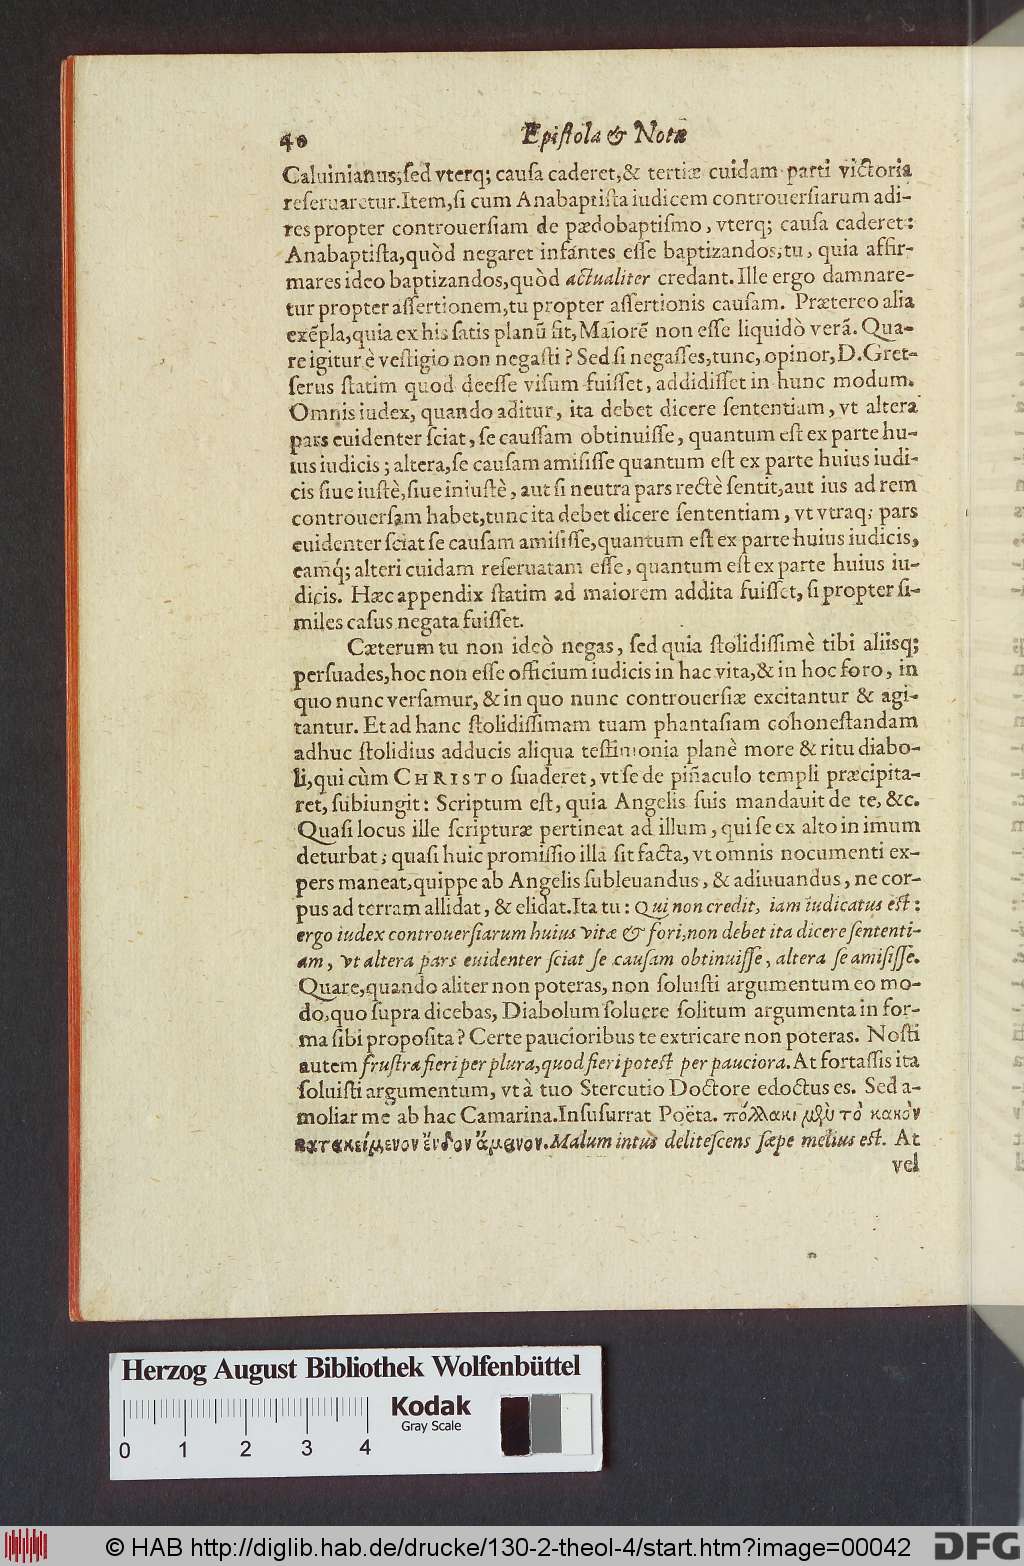 40 Epistola & Notæ
Caluinianus; sed vterq; causa caderet, & tertiæ cuidam parti victoria
reseruaretur. Item, si cum Anabaptista iudicem controuersiarum adi-
res propter controuersiam de pædobaptismo, vterq; causa caderet:
Anabaptista, quòd negaret infantes esse baptizandos, tu, quia affir-
mares ideo baptizandos, quòd actualiter credant. Ille ergo damnare-
tur propter assertionem, tu propter assertionis causam. Prætereo alia
exẽpla, quia ex his satis planũ fit, Maiorẽ non esse liquidò verã. Qua-
re igitur è vestigio non negasti? Sed si negasses, tunc, opinor, D. Gret-
serus statim quod deesse visum fuisset, addidisset in hunc modum.
Omnis iudex, quando aditur, ita debet dicere sententiam, vt altera
pars euidenter sciat, se caussam obtinuisse, quantum est ex parte hu-
ius iudicis; altera, se causam amisisse quantum est ex parte huius iudi-
cis siue iustè, siue iniustè, aut si neutra pars rectè sentit, aut ius ad rem
controuersam habet, tunc ita debet dicere sententiam, vt vtraq; pars
euidenter sciat se causam amisisse, quantum est ex parte huius iudicis,
eamq́; alteri cuidam reseruatam esse, quantum est ex parte huius iu-
dicis. Hæc appendix statim ad maiorem addita fuisset, si propter si-
miles casus negata fuisset.
Cæterum tu non ideò negas, sed quia stolidissimè tibi aliisq;
persuades, hoc non esse officium iudicis in hac vita, & in hoc foro, in
quo nunc versamur, & in quo nunc controuersiæ excitantur & agi-
tantur. Et ad hanc stolidissimam tuam phantasiam cohonestandam
adhuc stolidius adducis aliqua testimonia planè more & ritu diabo-
li, qui cùm CHRISTO suaderet, vt se de piñaculo templi præcipita-
ret, subiungit: Scriptum est, quia Angelis suis mandauit de te, &c.
Quasi locus ille scripturæ pertineat ad illum, qui se ex alto in imum
deturbat; quasi huic promissio illa sit facta, vt omnis nocumenti ex-
pers maneat, quippe ab Angelis subleuandus, & adiuuandus, ne cor-
pus ad terram allidat, & elidat. Ita tu: Qui non credit, iam iudicatus est:
ergo iudex controuersiarum huius vitæ & fori, non debet ita dicere sententi-
am, vt altera pars euidenter sciat se causam obtinuisse, altera se amisisse.
Quare, quando aliter non poteras, non soluisti argumentum eo mo-
do, quo supra dicebas, Diabolum soluere solitum argumenta in for-
ma sibi proposita? Certe paucioribus te extricare non poteras. Nosti
autem frustra fieri per plura, quod fieri potest per pauciora. At fortassis ita
soluisti argumentum, vt à tuo Stercutio Doctore edoctus es. Sed a-
moliar me ab hac Camarina. Insusurrat Poëta. πολλάκι μὲν τὸ κακὸν
κατακείμενον ἔνδον ἄμεινον. Malum intus delitescens sæpe melius est. At
vel
Herzog August Bibliothek Wolfenbüttel
Kodak
Gray Scale
0 1 2 3 4
© HAB http://diglib.hab.de/drucke/130-2-theol-4/start.htm?image=00042
DFG